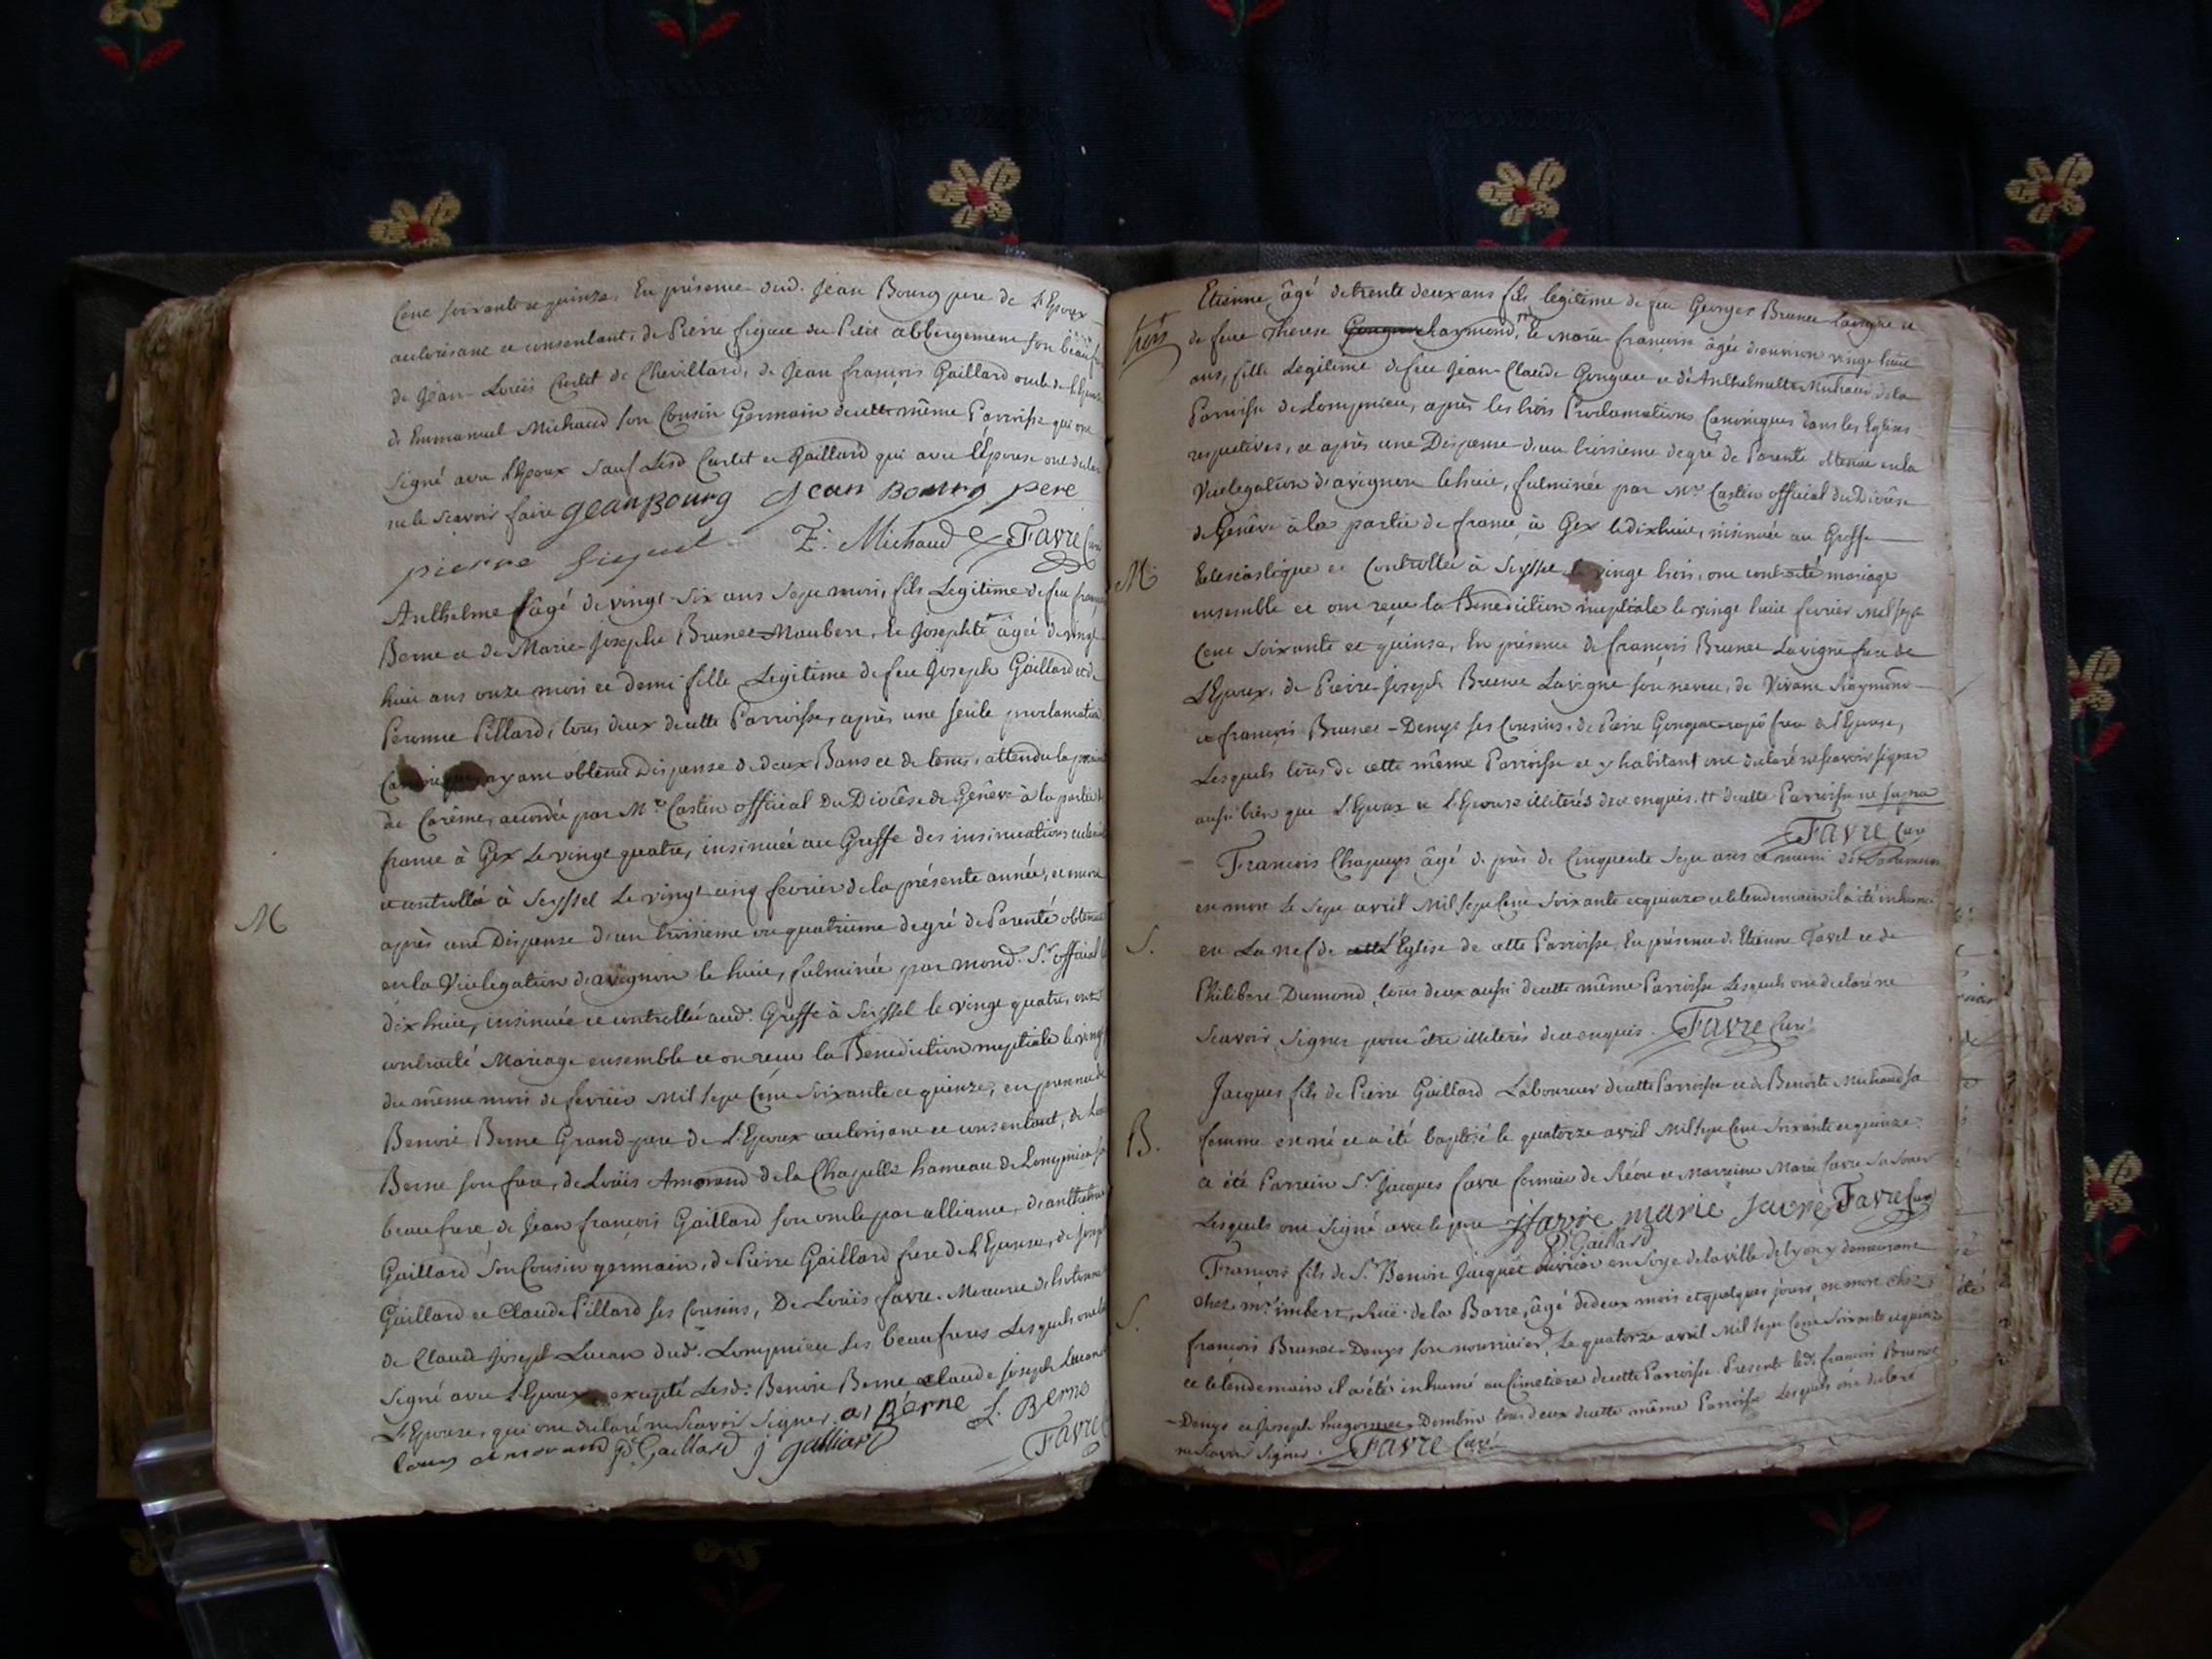 Cent soixante et quinze, En présence dud. Jean Bourg pere de L'Epoux
autorisant et consentant, de Pierre figuet du Petit abbergement son beau
de Jean-Louïs Carlet de Chevillard, de Jean françois Gaillard oncle de l'Epouse
de Emmanuel Michaud son Cousin Germain de cette même Parroisse qui ont
signé avec l'Epoux sauf Lesd Carlet et Gaillard qui avec l'Epouse ont declaré
ne le scavoir faire jean Bourg Jean Bourg pere
pierre figuet E: Michaud Favre Curé
Anthelme âgé de vingt-six ans sept mois, fils Legitime de feu françois
Berne et de Marie-Josephe Brunet-Maubert, et Josephte âgée de vingt
huit ans onze mois et demi fille Legitime de feu Joseph Gaillard et de
Peronne Pillard, tous deux de cette Parroisse, après une seule proclamation
ayant obtenu Dispense de deux Bans et de tems, attendu la
de Carême, accordée par Mre Castin official du Diocèse de Genève à la partie de
france à Gex Le vingt quatre, insinuée au Greffe des insinuations
et controllée à Seyssel Le vingt cinq fevrier de la présente année, et encore
après une Dispense d'un troisieme au quatrieme degré de Parenté obtenue
en la Vicelegation d'avignon le huit, fulminée par mond. Sr official le
dix huit, insinuée et controllée aud. Greffe à Seyssel le vingt quatre, ont
contracté Mariage ensemble et on reçu la Benediction nuptiale le vingt
du même mois de fevrier Mil sept Cent soixante et quinze, en presence de
Benoit Berne Grand-pere de L'Epoux autorisant et consentant, de
Berne son frere, de Louïs Amorand de la Chapelle hameau de Lompnieu son
beaufrere de Jean françois Gaillard son oncle par alliance, de anthelme
Gaillard son Cousin germain, de Pierre Gaillard frere de L'Epouse, de Joseph
Gaillard et Claude Pillard ses Cousins, De Louïs favre-Mercuret de hotonne
de Claude Joseph Lucan dud. Lompnieu ses beaufreres Lesquels ont
signé avec L'Epoux excepté Lesd: Benoit Berne Claude Joseph Lucan
L'Epouse, qui ont declaré ne scavoir signer. a, Bérne L. Berne
louis amorand P. Gaillard j galliard Favre
Etienne, âgé de trente deux ans fils legitime de feu Georges Brunet Lavigne et
trois
de feue Therese Raymond, et Marie françoise âgée d'environ vingt huit
ans, fille Legitime de feu Jean-Claude Gonguet et de Anthelmette Michaud de la
Parroisse de Lompnieu, après les trois Proclamations Canoniques dans les Eglises
respectives, et après une Dispense d'un troisieme degré de Parenté obtenue en la
Vicelegation d'avignon le huit, fulminée par Mre Castin official du Diocèse
de Genève à la partie de france à Gex le dix huit, insinuée au Greffe
M. Eclesiastique et Controllée à Seyssel le vingt trois, ont contracté mariage
ensemble et ont reçue la Benediction nuptiale le vingt huit fevrier Mil sept
Cent soixante et quinze, En présence de françois Brunet Lavigne frere de
L'Epoux, de Pierre-Joseph Brunet Lavigne son neveu, de Vivant Raymond
et françois Brunet-Denys ses Cousins, de Pierre Gonguet frere de l'Epouse,
Lesquels tous de cette même Parroisse et y habitant ont declaré ne scavoir signer
aussi bien que L'Epoux et L'Epouse illiterés de ce enquis. de cette Parroisse
Favre Curé
François Chapuys âgé de près de Cinquante sept ans et muni des Sacremens
est mort Le sept avril Mil sept Cent soixante et quinze et le lendemain il a été inhumé
S. en La nef de l'Eglise de cette Parroisse, En présence d'Etienne Tavel et de
Philibert Dumond, tous deux aussi de cette même Parroisse Lesquels ont declaré ne
Scavoir signer pour être illiterés de ce enquis. Favre Curé
Jacques fils de Pierre Gaillard Laboureur de cette Parroisse et de Benoite Michaud sa
B. femme est né et a été baptisé le quatorze avril Mil sept Cent soixante et quinze.
a été Parrein Sr. Jacques favre fermier de Réon et Marreine Marie favre sa soeur
Lesquels ont signé avec le pere jfavre marie favre Favre Curé
P. Gaillard
François fils de Sr. Benoit Jacquet ouvrier en Soye de la ville de Lyon y demeurant
Chez mr. imbert, Ruë de la Barre, âgé de deux mois et quelques jours, est mort chez
S. françois Brunet-Denys son nourricier, Le quatorze avril Mil sept Cent soixante et quinze
et le lendemain il a été inhumé au Cimetiere de cette Parroisse. Presents led. françois Brunet
-Denys et Joseph tous deux de cette même Parroisse Lesquels ont declaré
ne scavoir signer. Favre Curé